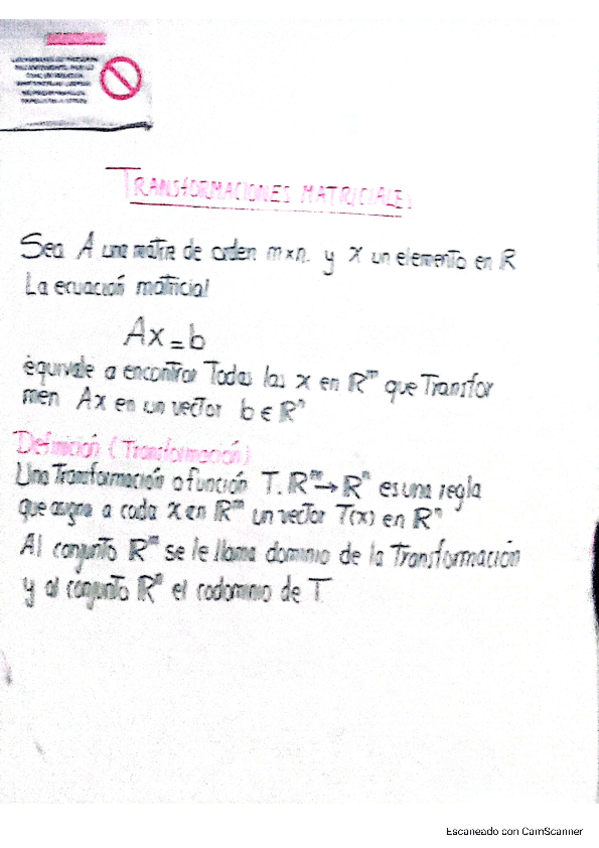 TRANSFORMACIONES MATRICIALES
Sea A una matriz de orden m×n. y x un elemento en ℝ
La ecuación matricial
Ax = b
equivale a encontrar Todas las x en ℝᵐ que Transfor
men Ax en un vector b ∈ ℝⁿ
Definición (Transformación)
Una Transformación o función T. ℝᵐ→ℝⁿ es una regla
que asigna a cada x en ℝᵐ un vector T(x) en ℝⁿ
Al conjunto ℝᵐ se le llama dominio de la Transformación
y al conjunto ℝⁿ el codominio de T.
Escaneado con CamScanner